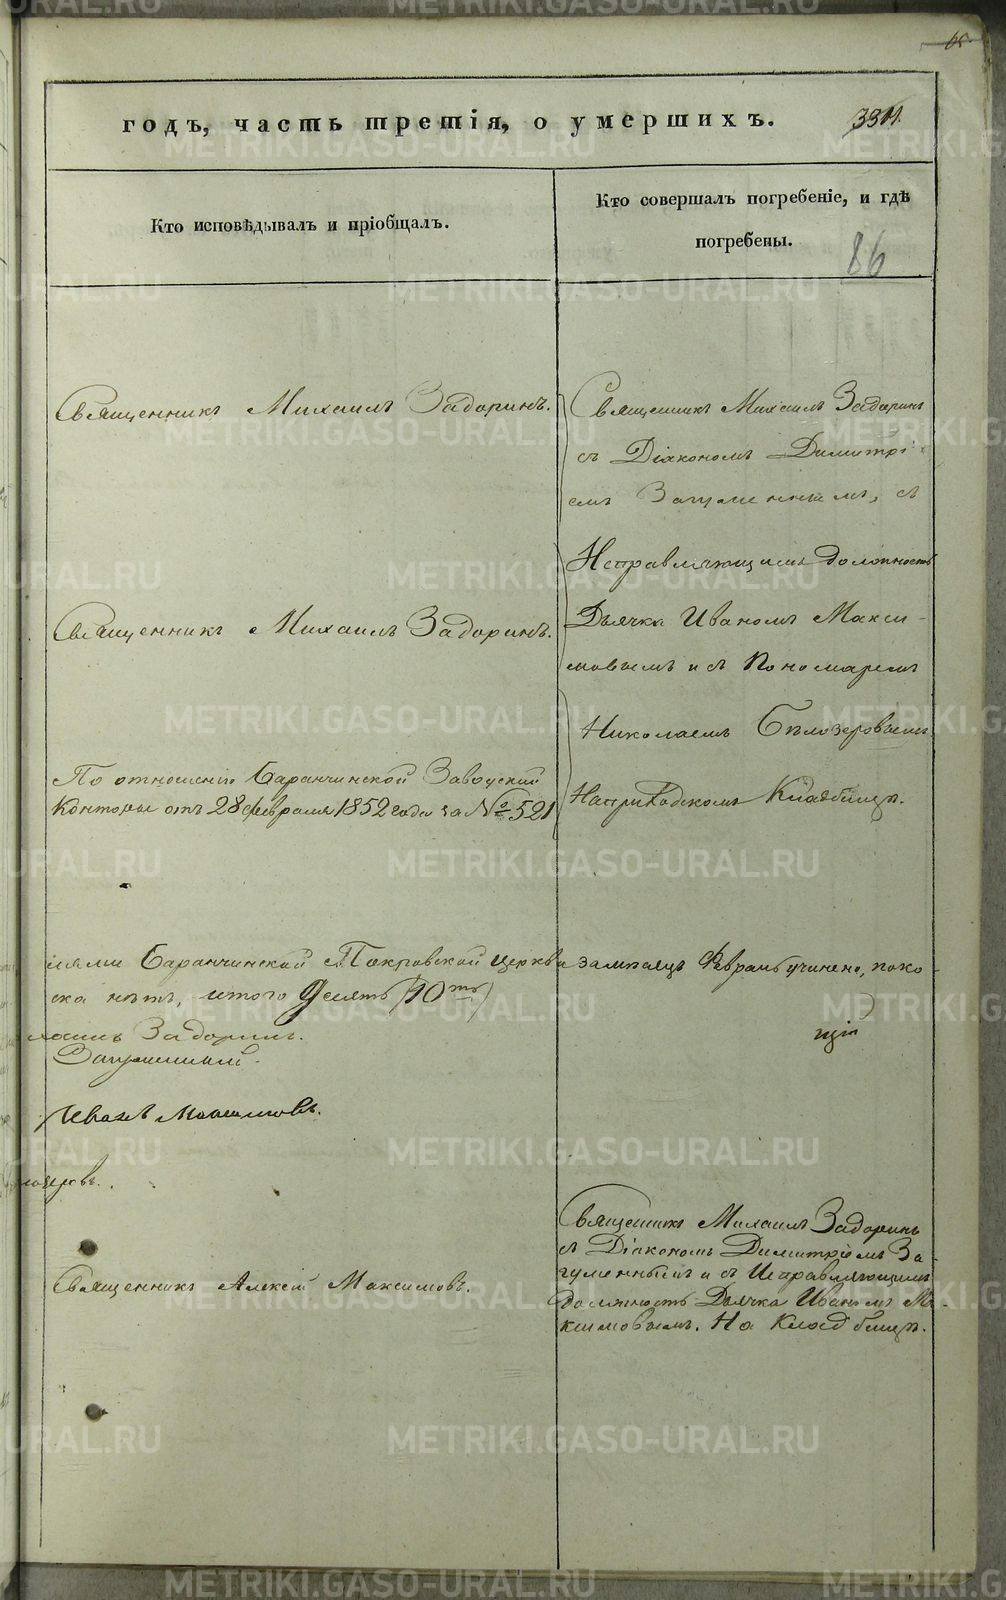 годъ, часть третія, о умершихъ.
Кто исповѣдывалъ и пріобщалъ.
Кто совершалъ погребеніе, и гдѣ
погребены.
86
Священникъ Михаилъ Задоринъ.
Священникъ Михаилъ Задоринъ
съ Діакономъ Димитрі-
емъ Загуменнымъ, съ
Исправляющимъ должность
Священникъ Михаилъ Задоринъ.
Дьячка Иваномъ Макси-
мовымъ и съ Пономаремъ
Николаемъ Бѣлозеровымъ
На приходскомъ Кладбищѣ.
По отношенію Баранчинской Заводской
Конторы отъ 28 февраля 1852 года за № 521
Баранчинской Покровской церкви за мѣсяцъ Февраль учинено, поко-
ка нѣтъ, итого Десять (10ть)
Задоринъ.
Загуменный.
Иванъ Максимовъ.
Священникъ Михаилъ Задоринъ
съ Діакономъ Димитріемъ За-
гуменнымъ и съ Исправляющимъ
должность Дьячка Иваномъ Ма-
ксимовымъ. На Кладбищѣ.
Священникъ Алексій Максимовъ.
METRIKI.GASO-URAL.RU